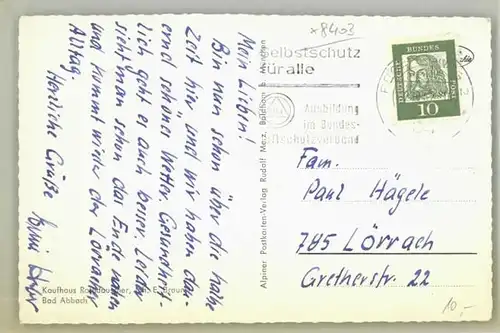 x8403
Meine Lieben!
Bin nun schon über die halbe
Zeit hier und wir haben dau-
ernd schönes Wetter. Gesundheit-
lich geht es auch besser. Leider
sieht man schon das Ende nahen
und kommt wieder der Lörracher
Alltag.
Herzliche Grüße
Selbstschutz
für alle
Ausbildung
im Bundes-
luftschutzverband
DEUTSCHE BUNDESPOST
10
Alpiner Postkarten-Verlag Rudolf Merz, Baldham b. München
Fam.
Paul Hägele
785 Lörrach
Gretherstr. 22
Kaufhaus
Bad Abbach
10,-